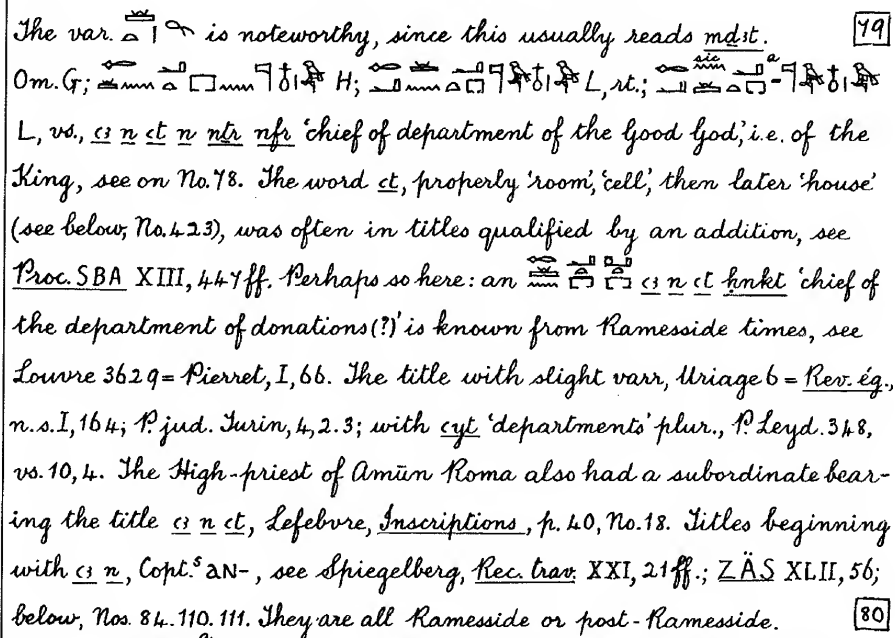 The var. is noteworthy, since this usually reads mdꜣt. 79
Om. G; H; L, rt.; sic a
L, vs., ꜥꜣ n ꜥt n nṯr nfr ‘chief of department of the Good God,’ i.e. of the
King, see on No. 78. The word ꜥt, properly ‘room’, ‘cell’, then later ‘house’
(see below, No. 423), was often in titles qualified by an addition, see
Proc. SBA XIII, 447 ff. Perhaps so here: an ꜥꜣ n ꜥt ḥnkt ‘chief of
the department of donations(?)’ is known from Ramesside times, see
Louvre 3629 = Pierret, I, 66. The title with slight varr, Uriage 6 = Rev. ég.,
n.s. I, 164; P. jud. Turin, 4, 2. 3; with ꜥyt ‘departments’ plur., P. Leyd. 348,
vs. 10, 4. The High-priest of Amūn Roma also had a subordinate bear-
ing the title ꜥꜣ n ꜥt, Lefebvre, Inscriptions, p. 40, No. 18. Titles beginning
with ꜥꜣ n, Copt.ˢ ⲁⲛ-, see Spiegelberg, Rec. trav. XXI, 21 ff.; ZÄS XLII, 56;
below, Nos. 84. 110. 111. They are all Ramesside or post-Ramesside. 80